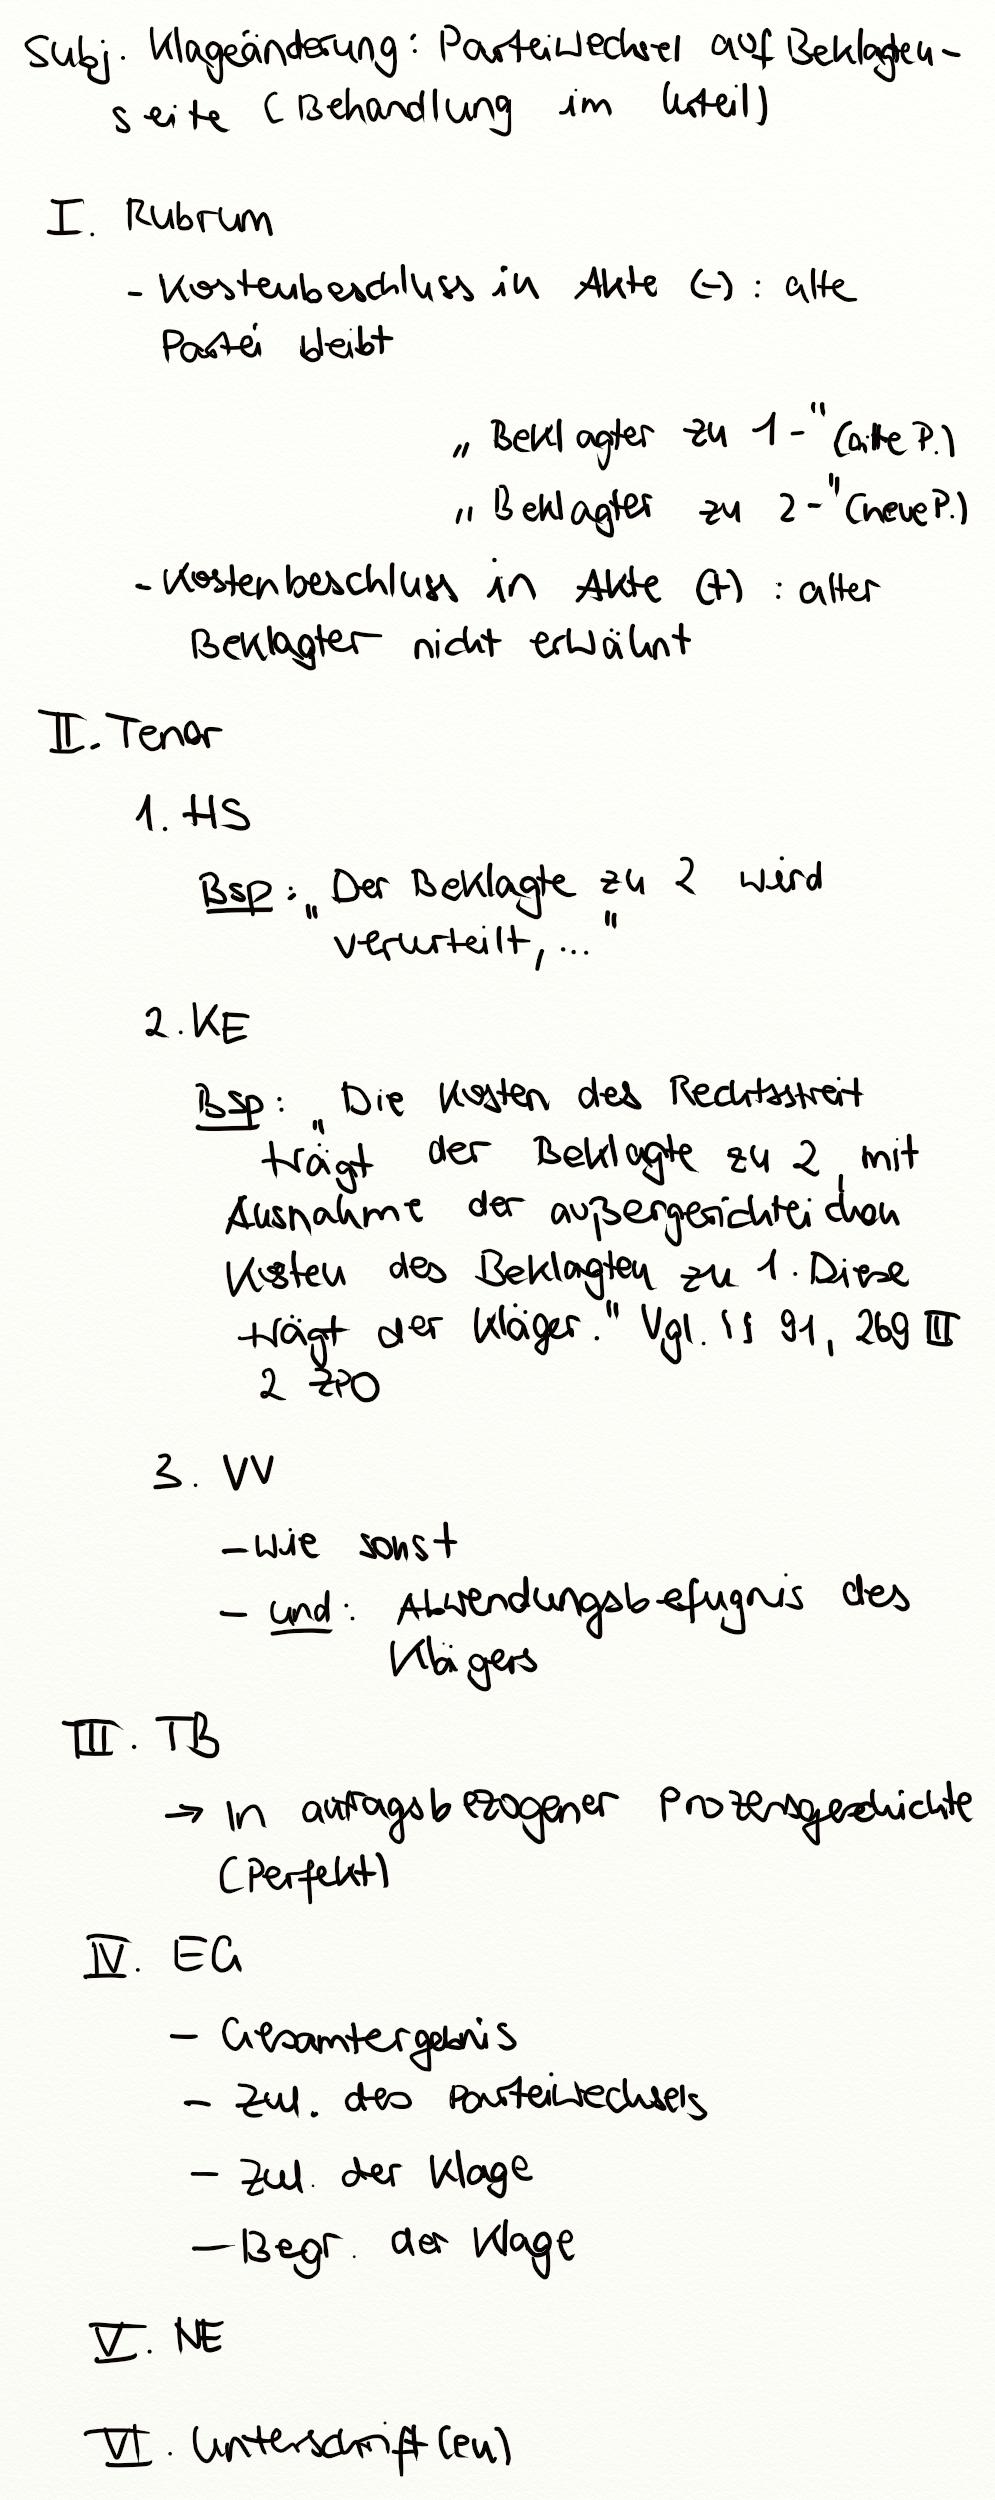 Subj. Klageänderung: Parteiwechsel auf Beklagten-
seite (Behandlung im Urteil)
I. Rubrum
- Kostenbeschluss in Akte (-): alte
Partei bleibt
„Beklagter zu 1-" (alte P.)
„Beklagter zu 2-" (neue P.)
- Kostenbeschluss in Akte (+): alter
Beklagter nicht erwähnt
II. Tenor
1. HS
Bsp: „Der Beklagte zu 2 wird
verurteilt, ..."
2. KE
Bsp: „Die Kosten des Rechtsstreit
trägt der Beklagte zu 2, mit
Ausnahme der außergerichtlichen
Kosten des Beklagten zu 1. Diese
trägt der Kläger." Vgl. §§ 91, 269 III
2 ZPO
3. VV
- wie sonst
- und: Abwendungsbefugnis des
Klägers
III. TB
→ In antragsbezogener Prozessgeschichte
(Perfekt)
IV. EG
- Gesamtergebnis
- Zul. des Parteiwechsels
- Zul. der Klage
- Begr. der Klage
V. NE
VI. Unterschrift(en)